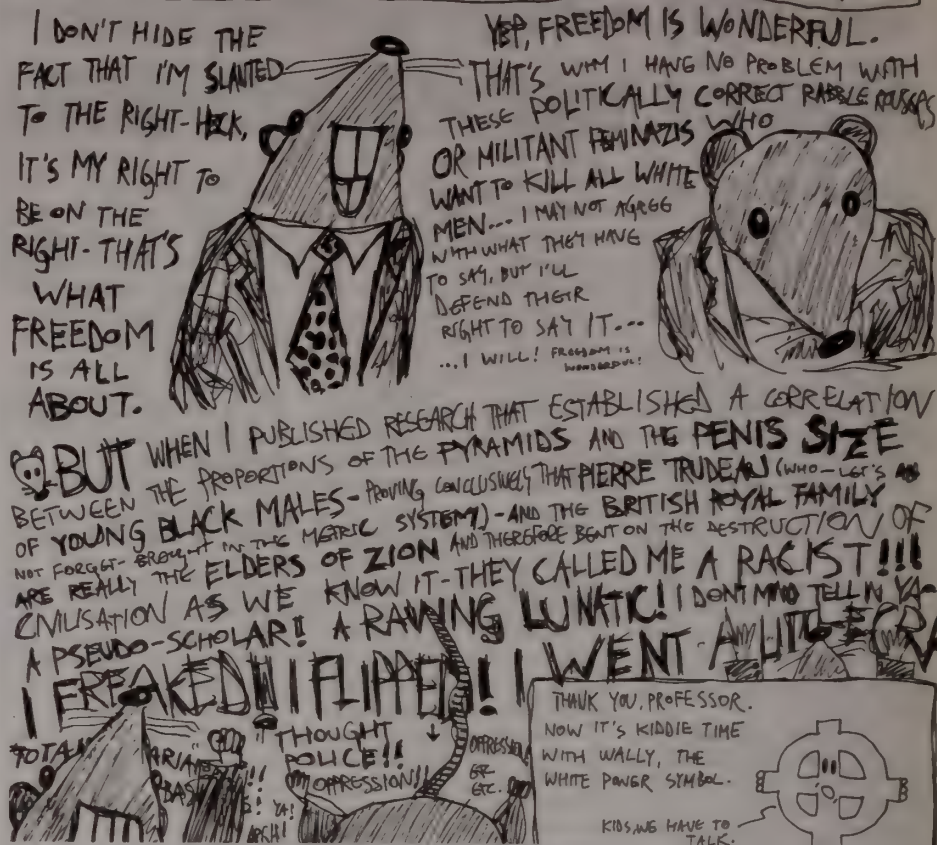 I DON'T HIDE THE
FACT THAT I'M SLANTED
TO THE RIGHT-HECK,
IT'S MY RIGHT TO
BE ON THE
RIGHT-THAT'S
WHAT
FREEDOM
IS ALL
ABOUT.
YEP, FREEDOM IS WONDERFUL.
THAT'S WHY I HAVE NO PROBLEM WITH
THESE POLITICALLY CORRECT RABBLE ROUSERS
OR MILITANT FEMINAZIS WHO
WANT TO KILL ALL WHITE
MEN... I MAY NOT AGREE
WITH WHAT THEY HAVE
TO SAY, BUT I'LL
DEFEND THEIR
RIGHT TO SAY IT...
...I WILL! FREEDOM IS
WONDERFUL!
BUT WHEN I PUBLISHED RESEARCH THAT ESTABLISHED A CORRELATION
BETWEEN THE PROPORTIONS OF THE PYRAMIDS AND THE PENIS SIZE
OF YOUNG BLACK MALES-PROVING CONCLUSIVELY THAT PIERRE TRUDEAU (WHO-LET'S
NOT FORGET-BROUGHT IN THE METRIC SYSTEM!)-AND THE BRITISH ROYAL FAMILY
ARE REALLY THE ELDERS OF ZION AND THEREFORE BENT ON THE DESTRUCTION OF
CIVILISATION AS WE KNOW IT-THEY CALLED ME A RACIST!!!
A PSEUDO-SCHOLAR!! A RAVING LUNATIC! I DONT MIND TELLIN YA-
I FREAKED!! I FLIPPED!! I WENT A LITTLE
THOUGHT
POLICE!!
OPPRESSION!!
YA!
ARGH!
ETC.
THANK YOU, PROFESSOR.
NOW IT'S KIDDIE TIME
WITH WALLY, THE
WHITE POWER SYMBOL.
KIDS, WE HAVE TO
TALK.